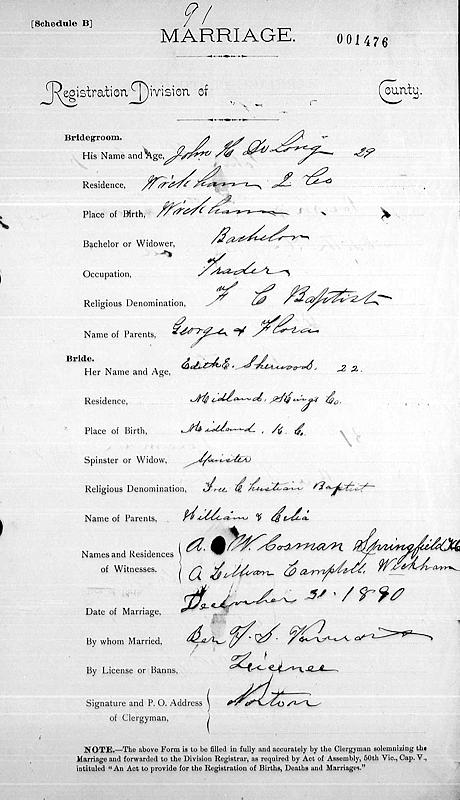 91
[Schedule B]
MARRIAGE.
001476
Registration Division of County.
Bridegroom.
His Name and Age, John H De Long 29
Residence, Wickham Q Co
Place of Birth, Wickham
Bachelor or Widower, Bachelor
Occupation, Trader
Religious Denomination, F C Baptist
Name of Parents, George & Flora
Bride.
Her Name and Age, Edith E. Sherwood. 22.
Residence, Midland. Kings Co.
Place of Birth, Midland. K. C.
Spinster or Widow, Spinster
Religious Denomination, Free Christian Baptist
Name of Parents, William & Celia
Names and Residences A. W. Cosman Springfield
of Witnesses. A Lillian Campbell Wickham
Date of Marriage, December 31. 1890
By whom Married,
By License or Banns, License
Signature and P. O. Address Norton
of Clergyman,
NOTE.—The above Form is to be filled in fully and accurately by the Clergyman solemnizing the
Marriage and forwarded to the Division Registrar, as required by Act of Assembly, 50th Vic., Cap. V.,
intituled "An Act to provide for the Registration of Births, Deaths and Marriages."